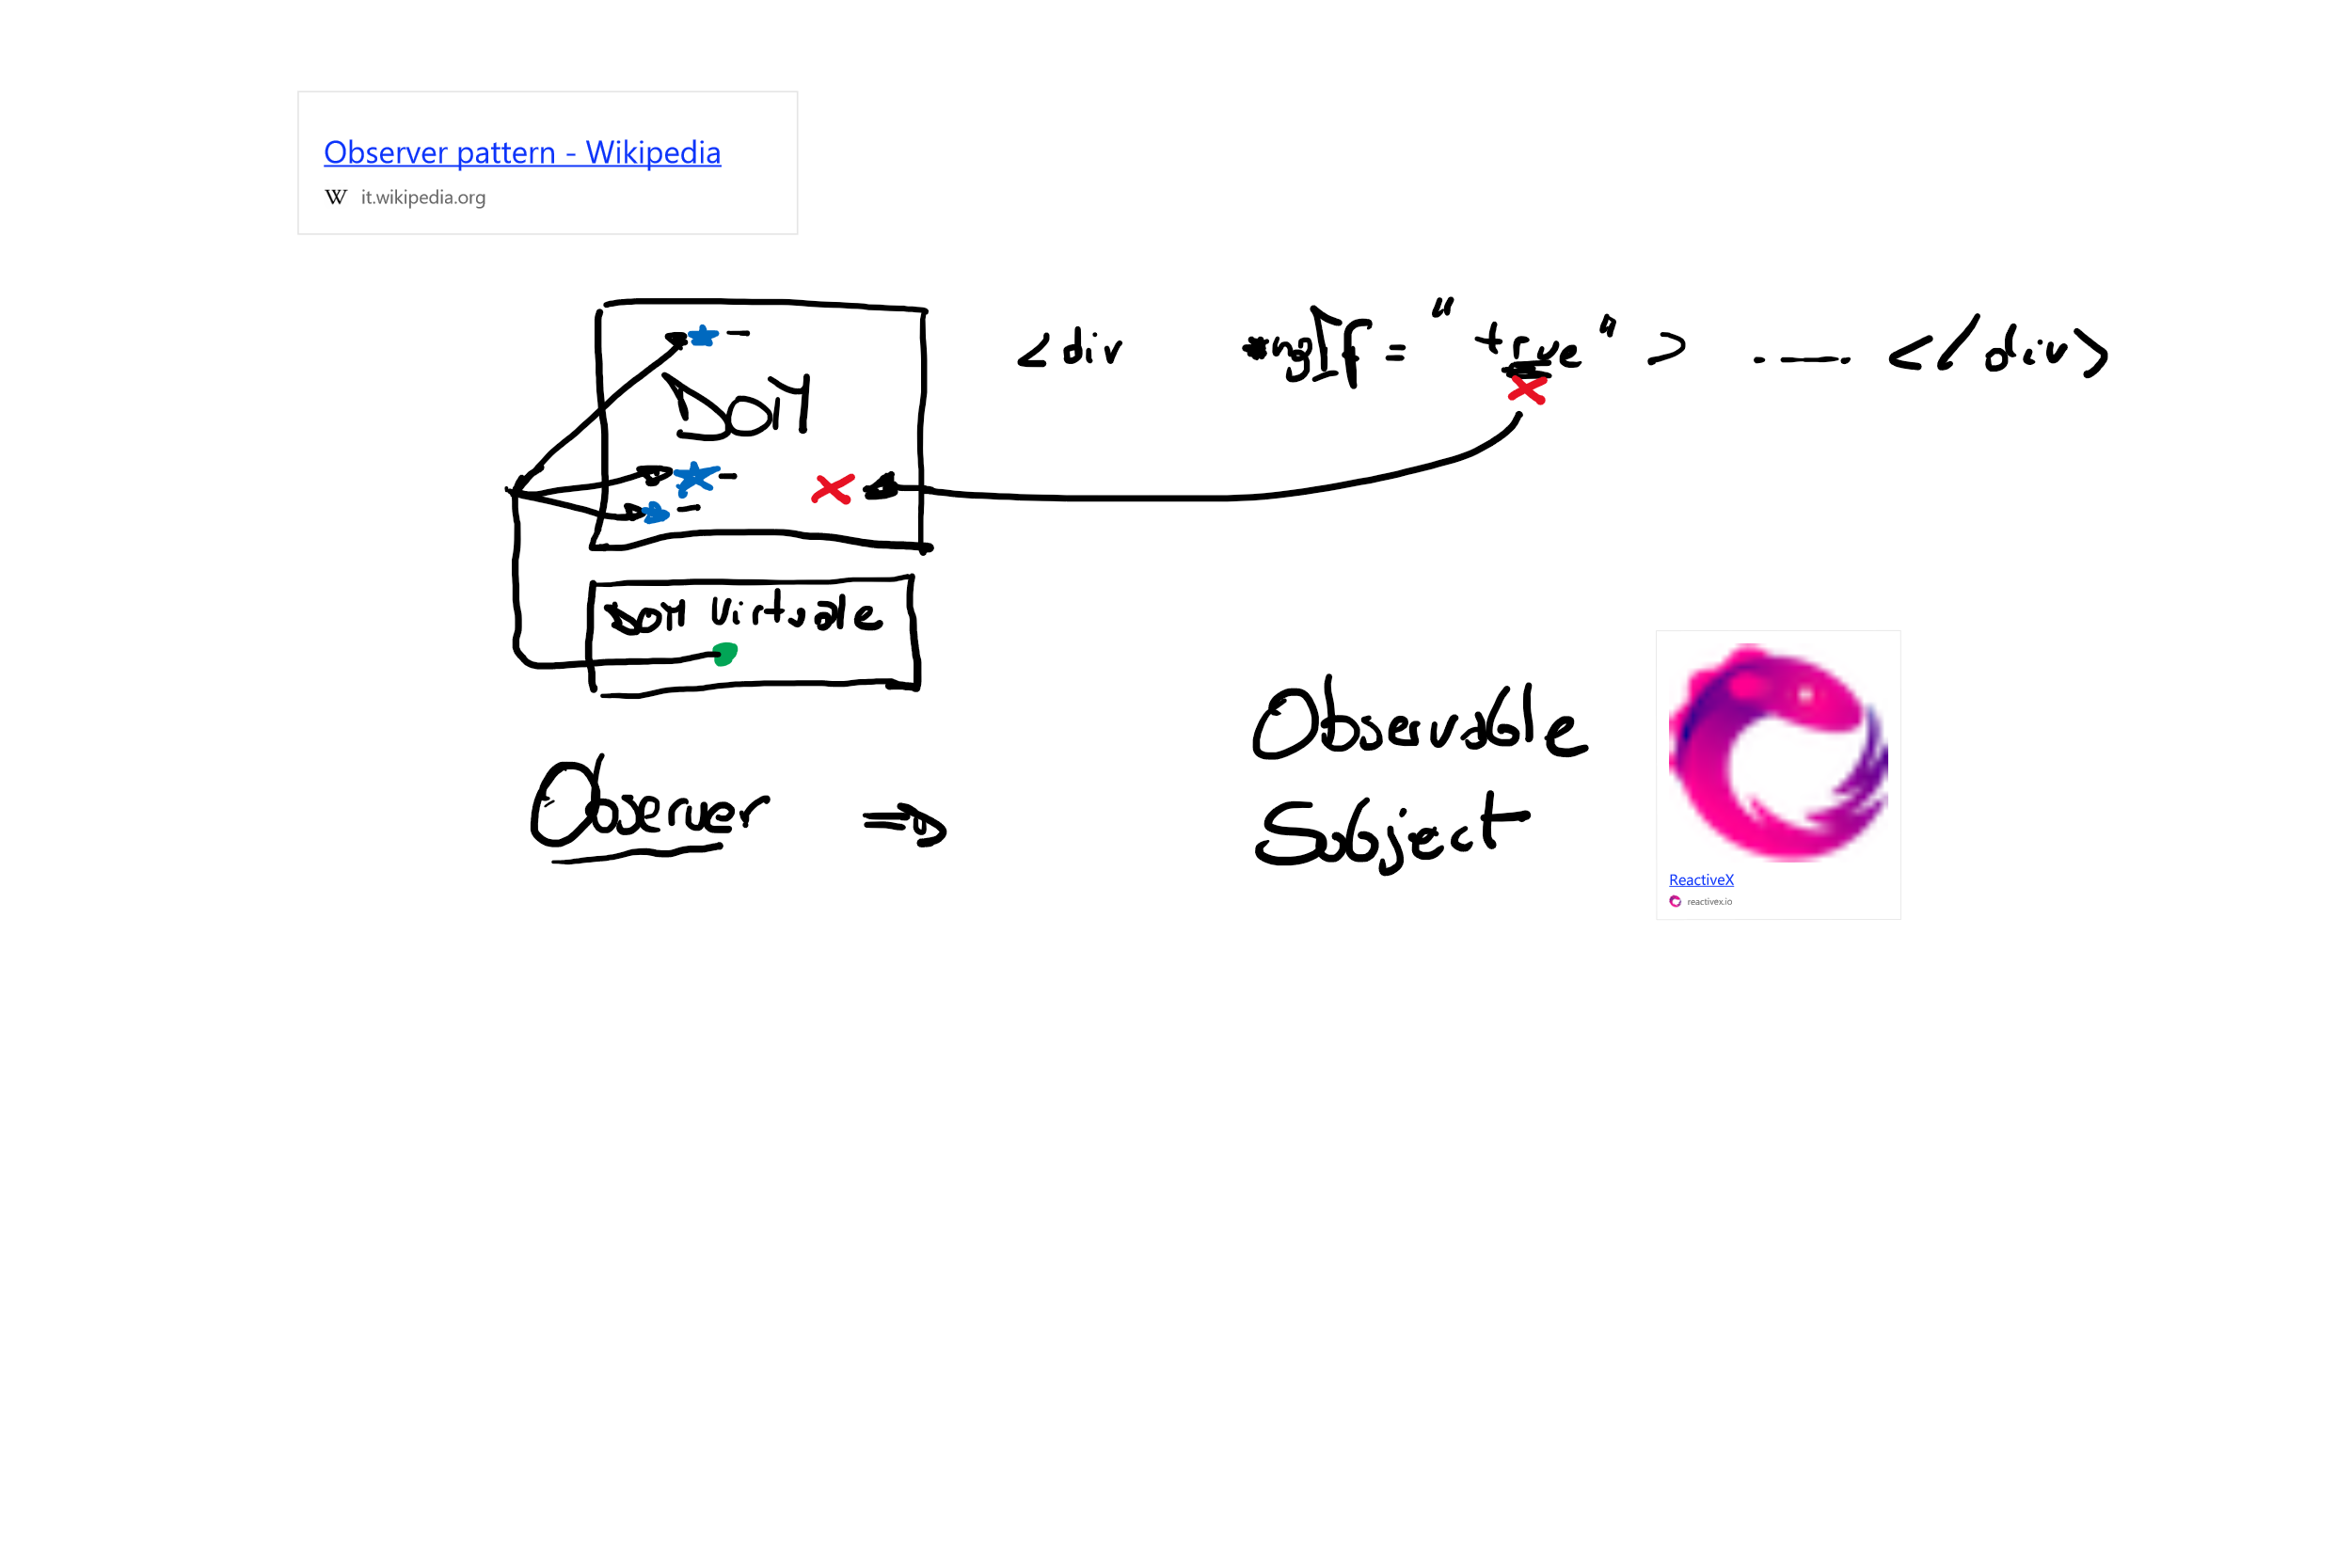 Observer pattern - Wikipedia
W it.wikipedia.org
<div *ngIf = "true" > ---- </div>
DOM
DOM Virtuale
Observable
Observer ⇒
Subject
ReactiveX
reactivex.io